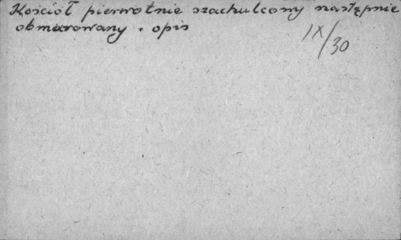 Kościół pierwotnie szachulcowy następnie
obmurowany . opis
IX/30